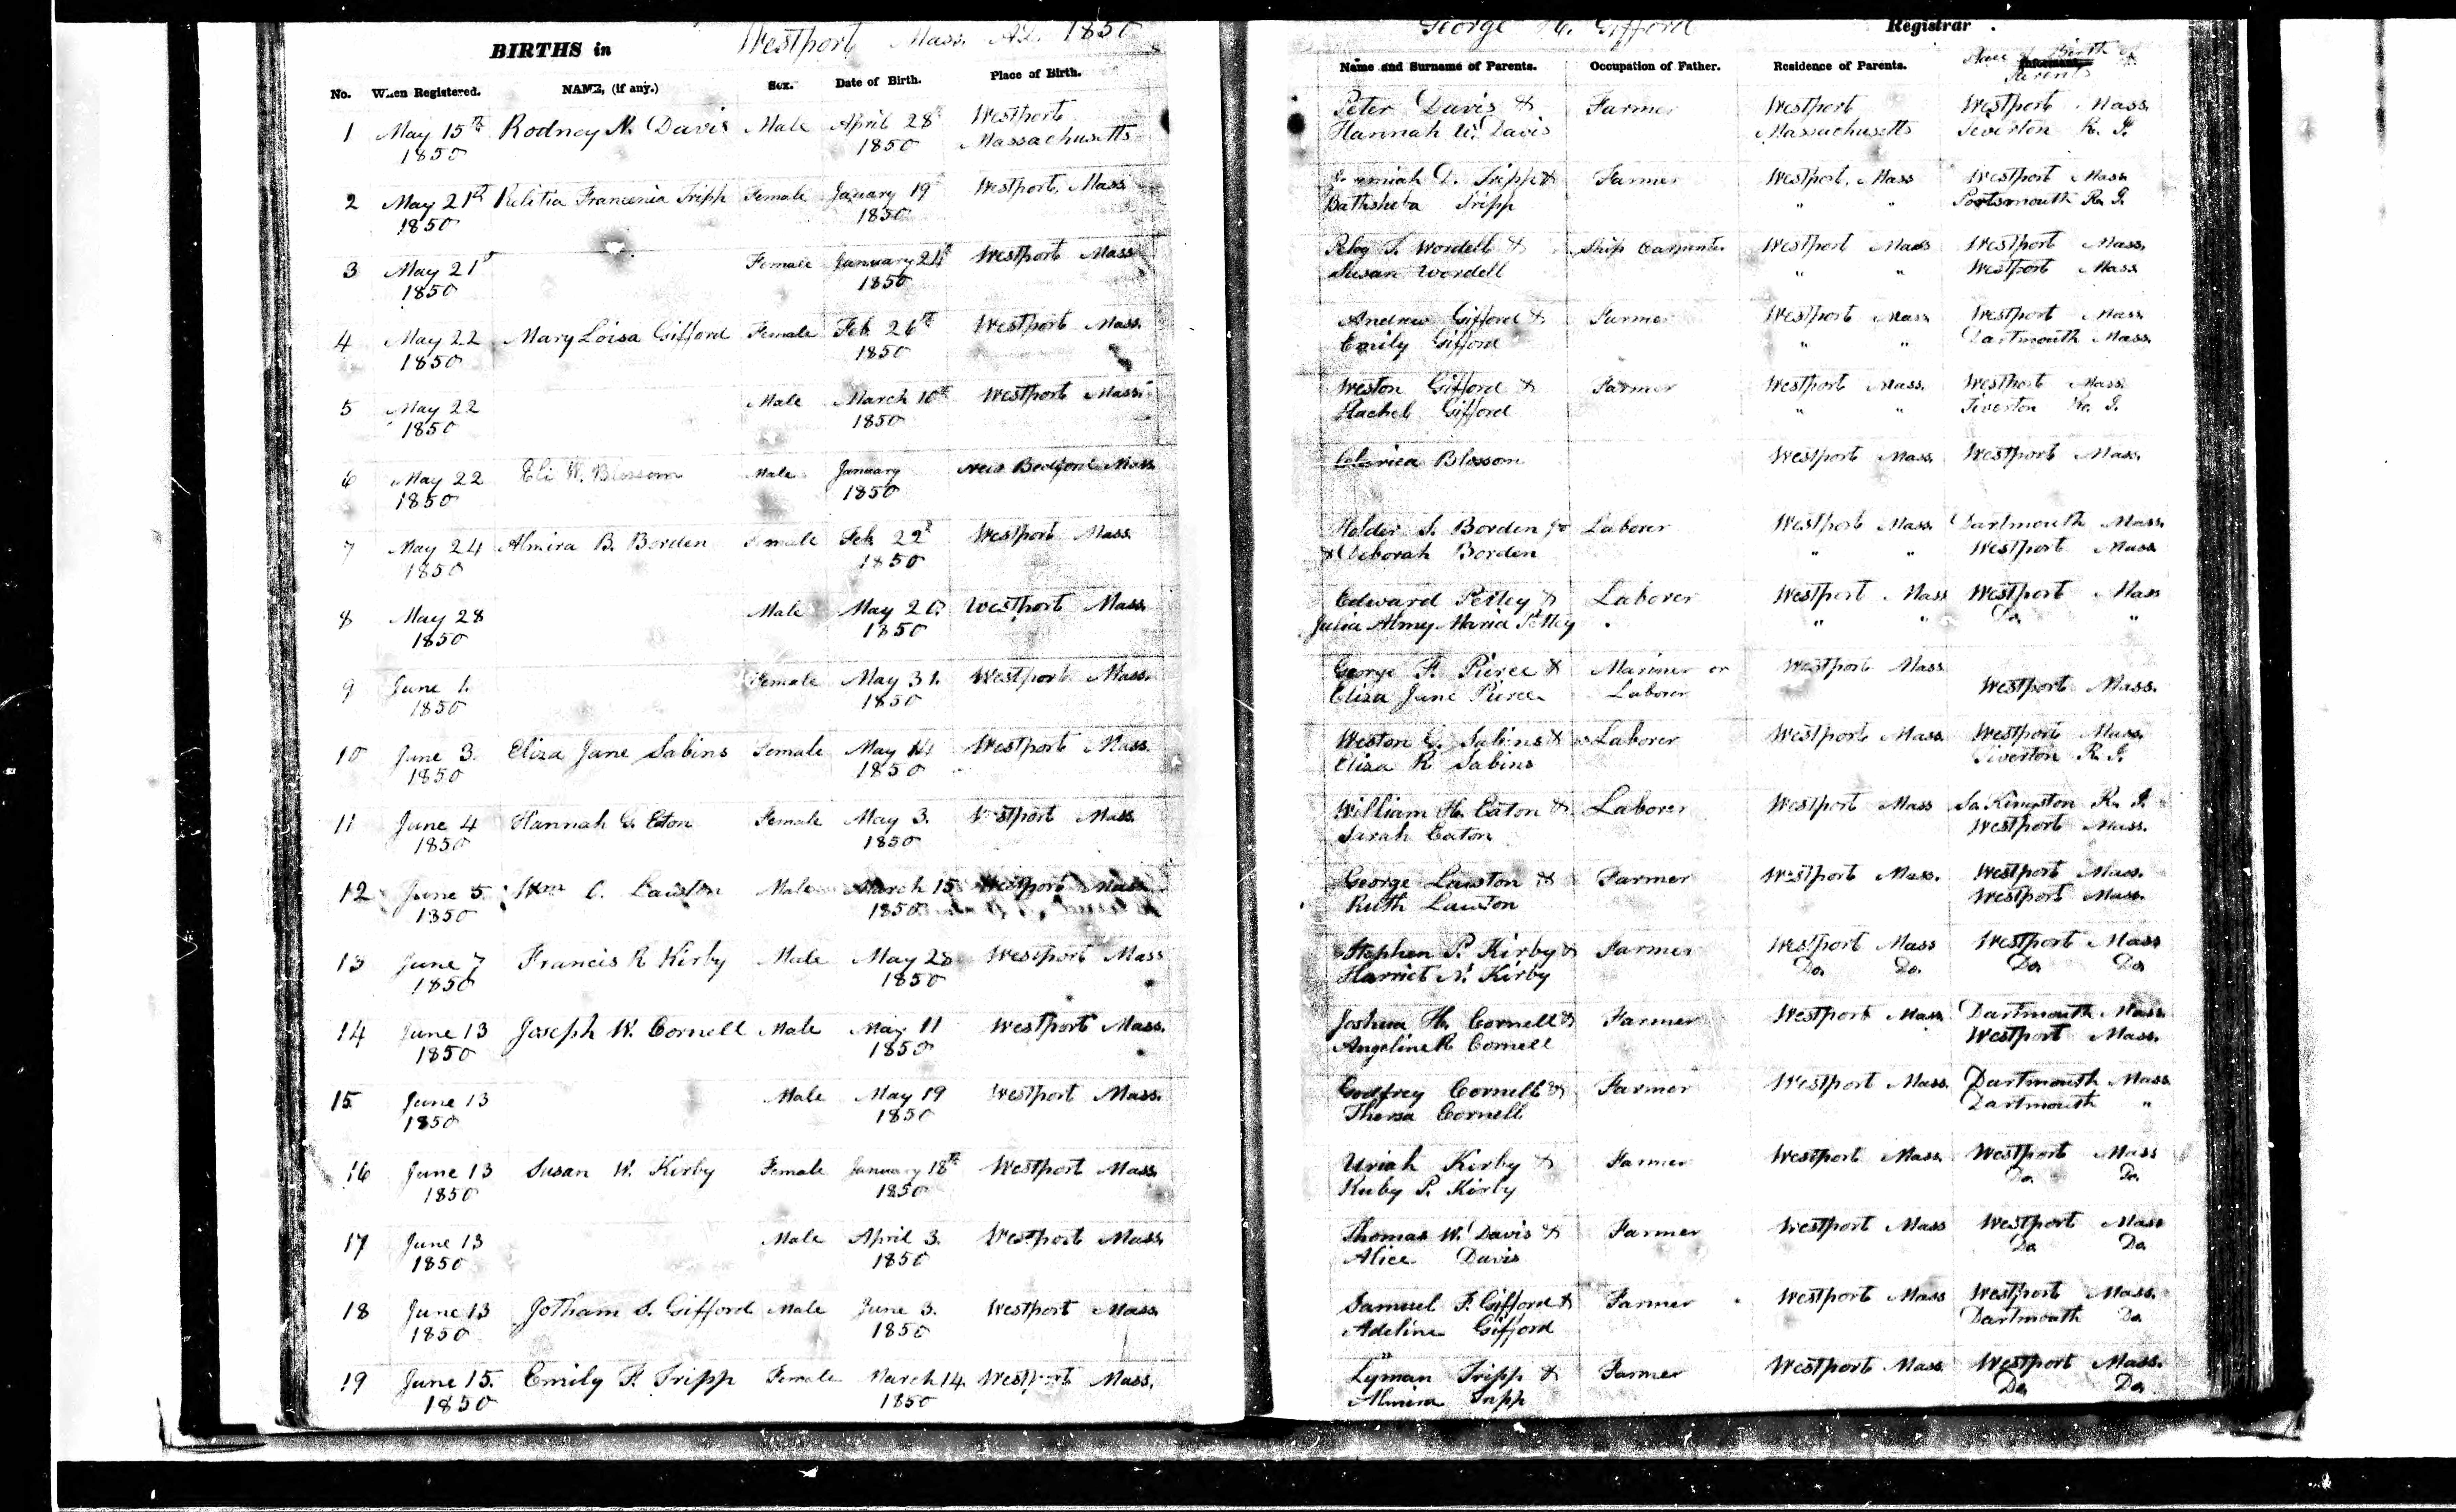 BIRTHS in Westport Mass. AD. 1850
No. When Registered. NAME, (if any.) Sex. Date of Birth. Place of Birth.
1 May 15th Rodney N. Davis Male April 28th Westport
1850 1850 Massachusetts
2 May 21st Francenia Tripp Female January 19th Westport, Mass
1850 1850
3 May 21st Female January 24th Westport Mass
1850 1850
4 May 22 Mary Loisa Gifford Female Feb 26th Westport Mass.
1850 1850
5 May 22 Male March 10th Westport Mass.
1850 1850
6 May 22 Eli W. Blossom Male January New Bedford Mass
1850 1850
7 May 24 Almira B. Borden Female Feb 22d Westport Mass.
1850 1850
8 May 28 Male May Westport Mass.
1850 1850
9 June 1. Female May 31. Westport Mass.
1850 1850
10 June 3. Eliza Jane Sabins Female May 14 Westport Mass.
1850 1850
11 June 4 Hannah G. Eaton Female May 3. Westport Mass.
1850 1850
12 June 5. Wm C. Lawton Male March 15 Westport Mass
1850 1850
13 June 7 Francis R Kirby Male May 28 Westport Mass
1850 1850
14 June 13 Joseph W. Cornell Male May 11 Westport Mass.
1850 1850
15. June 13 Male May 19 Westport Mass.
1850 1850
16 June 13 Susan W. Kirby Female January 18th Westport Mass
1850 1850
17 June 13 Male April 3. Westport Mass
1850 1850
18 June 13 Jotham S. Gifford Male June 3. Westport Mass
1850 1850
19 June 15. Emily F. Tripp Female March 14 Westport Mass.
1850 1850
George H. Gifford Registrar.
Name and Surname of Parents. Occupation of Father. Residence of Parents. Place of Birth of
Parents
Peter Davis & Farmer Westport Westport Mass
Hannah W. Davis Massachusetts Tiverton R. I.
Jeremiah D. Tripp & Farmer Westport, Mass Westport Mass
Bathsheba Tripp " " Portsmouth R. I.
Peleg S. Wordell & Ship Carpenter Westport Mass Westport Mass.
Susan Wordell " " Westport Mass
Andrew Gifford & Farmer Westport Mass Westport Mass
Emily Gifford " " Dartmouth Mass
Weston Gifford & Farmer Westport Mass. Westport Mass
Rachel Gifford " " Tiverton R. I.
Blossom Westport Mass Westport Mass.
Holder S. Borden Laborer Westport Mass. Dartmouth Mass.
& Deborah Borden " " Westport Mass
Edward Petley & Laborer Westport Mass Westport Mass
Julia Almy Maria Petley " " Do. "
George F. Pierce & Mariner or Westport Mass
Eliza Jane Pierce Laborer Westport Mass.
Weston G. Sabins & Laborer Westport Mass Westport Mass.
Eliza R Sabins Tiverton R. I.
William H. Eaton & Laborer Westport Mass So. Kingston R. I.
Sarah Eaton Westport Mass.
George Lawton & Farmer Westport Mass. Westport Mass.
Ruth Lawton Westport Mass.
Stephen P. Kirby & Farmer Westport Mass Westport Mass
Harriet N. Kirby Do. Do. Do. Do
Joshua H. Cornell & Farmer Westport Mass Dartmouth Mass
Angeline R Cornell Westport Mass.
Godfrey Cornell & Farmer Westport Mass. Dartmouth Mass
Cornell Dartmouth "
Uriah Kirby & Farmer Westport Mass Westport Mass
Ruby P. Kirby Do. Do.
Thomas W. Davis & Farmer Westport Mass Westport Mass
Alice Davis Do Do
Samuel F. Gifford & Farmer Westport Mass Westport Mass.
Adeline Gifford Dartmouth Do
Lyman Tripp & Farmer Westport Mass Westport Mass.
Almira Tripp Do. Do.